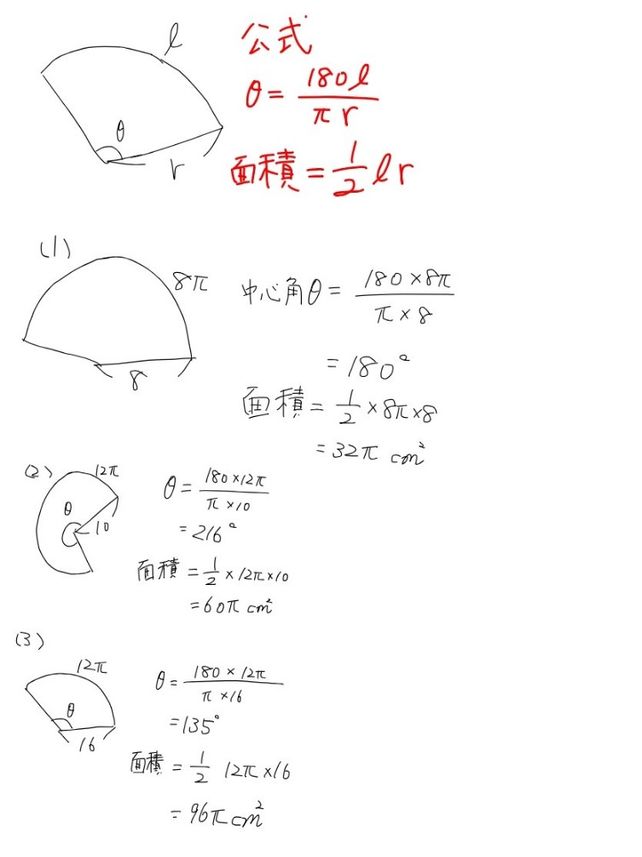 l
公式
θ = 180l / πr
θ
r
面積 = 1/2 l r
(1)
8π
8
中心角θ = 180×8π / π×8
= 180°
面積 = 1/2 × 8π×8
= 32π cm²
(2)
12π
θ
10
θ = 180×12π / π×10
= 216°
面積 = 1/2 × 12π×10
= 60π cm²
(3)
12π
θ
16
θ = 180×12π / π×16
= 135°
面積 = 1/2 12π×16
= 96π cm²